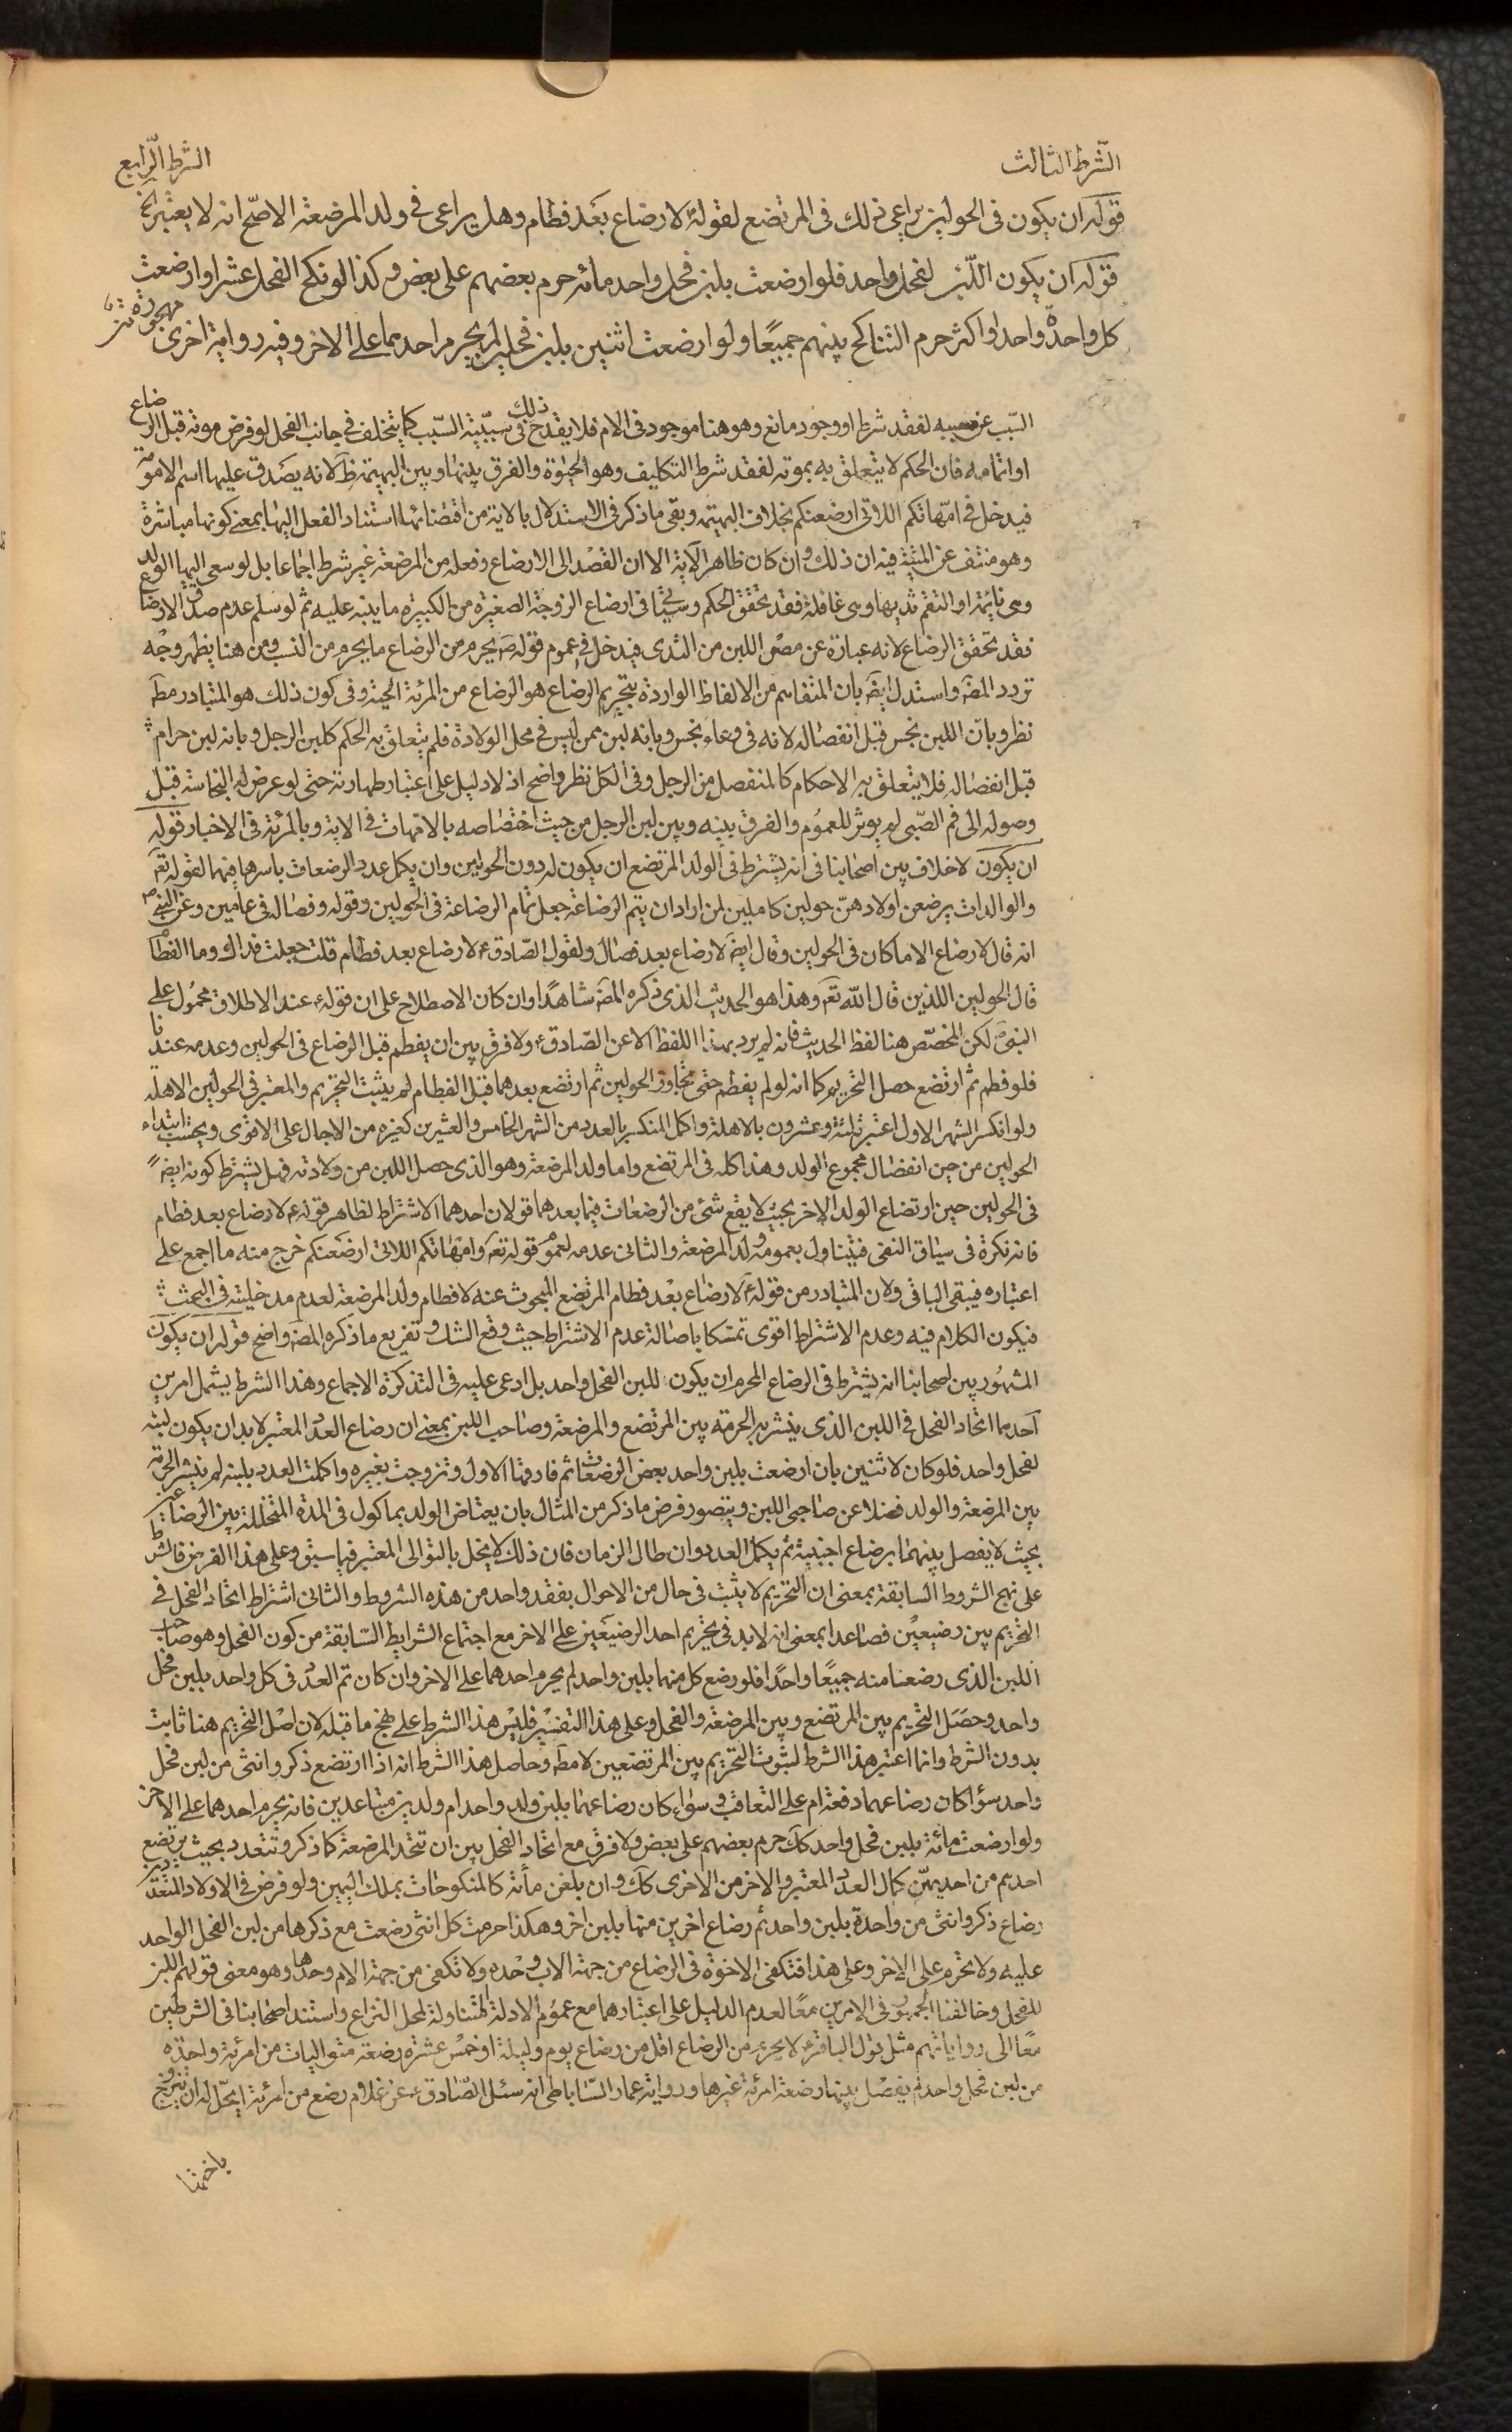 الشرط الثالث
الشرط الرابع
قوله ان يكون فى الحولين يراعى ذلك فى المرتضع لقوله لا رضاع بعد فطام وهل يراعى فى ولد المرضعة الاصح انه لا يعتبر الخ
قوله ان يكون اللبن لفحل واحد فلو ارضعت بلبن فحل واحد مائة حرم بعضهم على بعض وكذا لو نكح الفحل عشرا وارضعت
كل واحدة واحدا او اكثر حرم التناكح بينهم جميعًا ولو ارضعت اثنين بلبن فحلين لم يحرم احدهما على الاخر وفيه رواية اخرى مهجورة
السّبب عن مسببه لفقد شرط او وجود مانع وهو هنا موجود فى الام فلا يقدح ذلك فى سببيّة السّبب كما يتخلف فى جانب الفحل لو فرض موته قبل الرضاع
او اتمامه فان الحكم لا يتعلق به بموته لفقد شرط التكليف وهو الحيٰوة والفرق بينها وبين البهيمة ظ لانه يصدق عليها اسم الامومة
فيدخل فى امّهاتكم اللاتى ارضعنكم بخلاف البهيمة وبقى ما ذكر فى الاستدلال بالاية من اقتضائها استناد الفعل اليها بمعنى كونها مباشرة
وهو منتف عن الميتة فيه ان ذلك وان كان ظاهر الآية الا ان القصد الى الارضاع وفعله من المرضعة غير شرط اجماعا بل لو سعى اليها الولد
وهى نائمة او التقم ثديها وهى غافلة فقد تحقق الحكم وسيأتى فى ارضاع الزوجة الصغيرة من الكبيرة ما ينبه عليه ثم لو سلم عدم صدق الارضاع
فقد تحقق الرضاع لانه عبارة عن مص اللبن من الثدى فيدخل فى عموم قوله ص يحرم من الرضاع ما يحرم من النسب ومن هنا يظهر وجه
تردد المصَ واستدل ايضَ بان المتفاهم من الالفاظ الواردة بتحريم الرضاع هو الرضاع من المرئة الحية وفى كون ذلك هو المتبادر مطَ
نظر وبان اللبن نجس قبل انفصاله لانه فى وعاء نجس وبانه لبن ممن ليس فى محل الولادة فلم يتعلق به الحكم كلبن الرجل وبانه لبن حرام
قبل انفصاله فلا يتعلق به الاحكام كالمنفصل من الرجل وفى الكل نظر واضح اذ لا دليل على اعتبار طهارته حتى لو عرض له النجاسة قبل
وصوله الى فم الصّبى لم يوثر للعموم والفرق بينه وبين لبن الرجل من حيث اختصاصه بالامهات فى الاية وبالمرئة فى الاخبار قوله
ان يكون لا خلاف بين اصحابنا فى انه يشترط فى الولد المرتضع ان يكون له دون الحولين وان يكمل عدد الرضعات باسرها فيهما لقوله تعَ
والوالدات يرضعن اولادهنّ حولين كاملين لمن اراد ان يتم الرضاعة جعل تمام الرضاعة فى الحولين وقوله وفصاله فى عامين وعن النبى ص
انه قال لا رضاع الا ما كان فى الحولين وقال ايضَ لا رضاع بعد فصال ولقول الصّادق ع لا رضاع بعد فطام قلت جعلت فداك وما الفطام
قال الحولين اللذين قال الله تعَ وهذا هو الحديث الذى ذكره المصَ شاهدًا وان كان الاصطلاح على ان قوله ع عند الاطلاق محمول على
النبىّ لكن المخصّص هنا لفظ الحديث فانه لم يرد بهذا اللفظ الا عن الصّادق ع ولا فرق بين ان يفطم قبل الرضاع فى الحولين وعدمه عندنا
فلو فطم ثم ارتضع حصل التحريم كما انه لو لم يفطم حتى تجاوز الحولين ثم ارتضع بعدهما قبل الفطام لم يثبت التحريم والمعتبر فى الحولين الاهلة
ولو انكسر الشهر الاول اعتبر ثلثة وعشرون بالاهلة واكمل المنكسر بالعدد من الشهر الخامس والعشرين كغيره من الاجال على الاقوى ويحتسب ابتداء
الحولين من حين انفصال مجموع الولد وهذا كله فى المرتضع واما ولد المرضعة وهو الذى حصل اللبن من ولادته فهل يشترط كونه ايضً
فى الحولين حين ارتضاع الولد الاخر بحيث لا يقع شئ من الرضعات فيما بعدهما قولان احدهما الاشتراط لظاهر قوله ع لا رضاع بعد فطام
فانه نكرة فى سياق النفى فيتناول بعمومه ولد المرضعة والثانى عدمه لعموم قوله تعَ وامهاتكم اللاتى ارضعنكم خرج منه ما اجمع على
اعتباره فيبقى الباقى ولان المتبادر من قوله ع لا رضاع بعد فطام المرتضع المبحوث عنه لا فطام ولد المرضعة لعدم مدخليته فى البحث
فيكون الكلام فيه وعدم الاشتراط اقوى تمسّكا باصالة عدم الاشتراط حيث وقع الشك وتفريع ما ذكره المصَ واضح قوله ان يكون
المشهور بين اصحابنا انه يشترط فى الرضاع المحرم ان يكون اللبن لفحل واحد بل ادعى عليه فى التذكرة الاجماع وهذا الشرط يشمل امرين
احدهما اتحاد الفحل فى اللبن الذى ينشر به الحرمة بين المرتضع والمرضعة وصاحب اللبن بمعنى ان رضاع العدد المعتبر لا بد ان يكون لبنه
لفحل واحد فلو كان لاثنين بان ارضعت بلبن واحد بعض الرضعات ثم فارقها الاول وتزوجت بغيره واكملت العدد بلبنه لم ينشر الحرمة
بين المرضعة والولد فضلا عن صاحبى اللبن ويتصور فرض ما ذكر من المثال بان يعتاض الولد بماكول فى المدة المتخللة بين الرضاعين
بحيث لا يفصل بينهما برضاع اجنبية ثم يكمل العدد وان طال الزمان فان ذلك لا يخل بالتوالى المعتبر فيما سبق وعلى هذا الفرض فالشرط
على نهج الشروط السابقة بمعنى ان التحريم لا يثبت فى حال من الاحوال بفقد واحد من هذه الشروط والثانى اشتراط اتحاد الفحل فى
التحريم بين رضيعين فصاعدا بمعنى انه لا بد فى تحريم احد الرضيعين على الاخر مع اجتماع الشرايط السّابقة من كون الفحل وهو صاحب
اللبن الذى رضعنا منه جميعًا واحدًا فلو رضع كل منهما بلبن واحد لم يحرم احدهما على الاخر وان كان تم العدد فى كل واحد بلبن فحل
واحد وحصل التحريم بين المرتضع وبين المرضعة والفحل وعلى هذا التفسير فليس هذا الشرط على نهج ما قبله لان اصل التحريم هنا ثابت
بدون الشرط وانما اعتبر هذا الشرط لثبوت التحريم بين المرتضعين لا مطَ وحاصل هذا الشرط انه اذا ارتضع ذكر وانثى من لبن فحل
واحد سواء كان رضاعهما دفعة ام على التعاقب وسواء كان رضاعهما بلبن ولد واحد ام ولدين متباعدين فانه يحرم احدهما على الاخر
ولو ارضعت مائة بلبن فحل واحد كك حرم بعضهم على بعض ولا فرق مع اتحاد الفحل بين ان تتحد المرضعة كما ذكر وتتعدد بحيث يرتضع
احدهم من احديهنّ كمال العدد المعتبر والاخر من الاخرى كك وان بلغن مائة كالمنكوحات بملك اليمين ولو فرض فى الاولاد المتعددين
رضاع ذكر وانثى من واحدة بلبن واحد ثم رضاع اخرين منها بلبن اخر وهكذا حرمت كل انثى رضعت مع ذكرها من لبن الفحل الواحد
عليه ولا تحرم على الاخر وعلى هذا فتكفى الاخوة فى الرضاع من جهة الاب وحده ولا تكفى من جهة الام وحدها وهو معنى قولهم اللبن
للفحل وخالفنا الجمهور فى الامرين معًا لعدم الدليل على اعتبارهما مع عموم الادلة المتناولة لمحل النزاع واستند اصحابنا فى الشرطين
معًا الى رواياتهم مثل قول الباقر ع لا يحرم من الرضاع اقل من رضاع يوم وليلة او خمس عشرة رضعة متواليات من امرئة واحدة
من لبن فحل واحد لم يفصل بينها رضعة امرئة غيرها ورواية عمار السّاباطى انه سئل الصّادق ع عن غلام رضع من امرئة ايحل له ان يتزوج
باختها